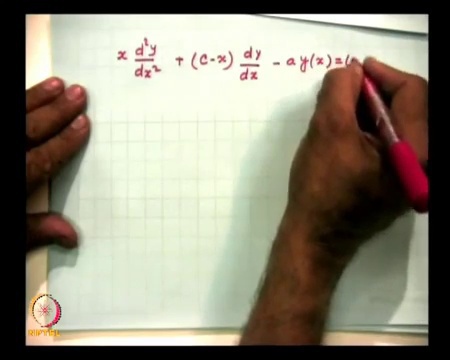 x d²y/dx² + (c-x) dy/dx - a y(x) = (
NPTEL